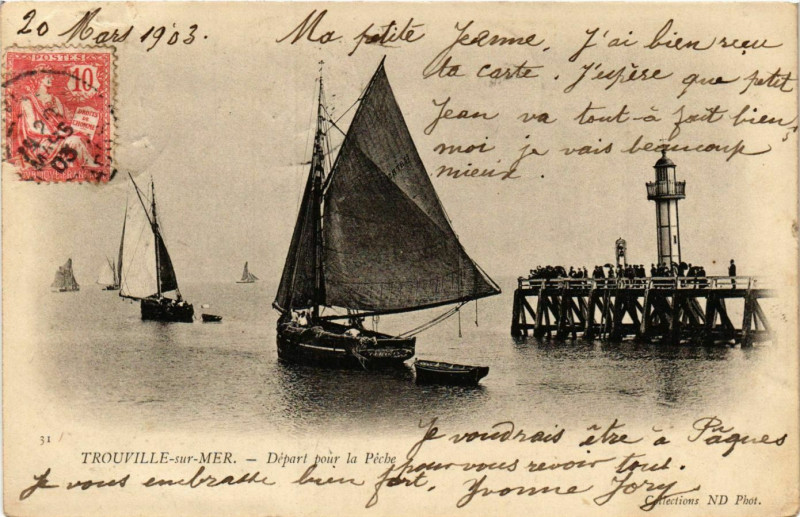 20 Mars 1903.
Ma petite Jeanne, J'ai bien reçu
ta carte. J'espère que petit
Jean va tout-à fait bien,
moi je vais beaucoup
mieux.
POSTES
10
MARS
03
31
TROUVILLE-sur-MER. — Départ pour la Pêche
Je voudrais être à Pâques
pour vous revoir tout.
Je vous embrasse bien fort. Yvonne Jory
Collections ND Phot.